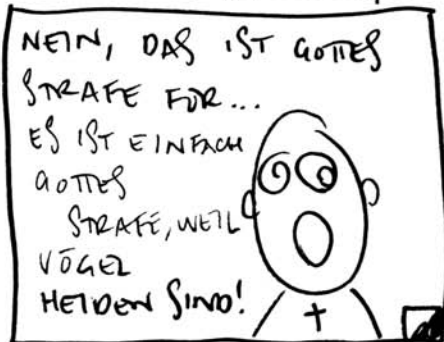 NEIN, DAS IST GOTTES
STRAFE FÜR...
ES IST EINFACH
GOTTES
STRAFE, WEIL
VÖGEL
HEIDEN SIND!